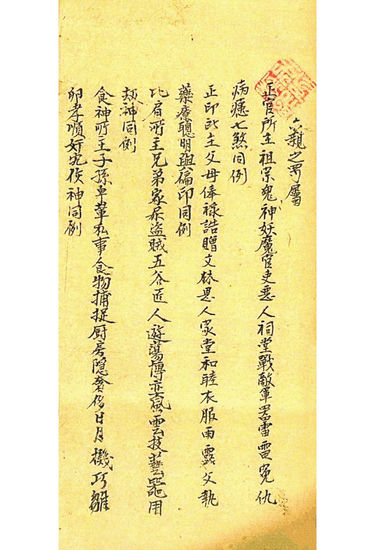 六親之男屬
正官所主祖宗鬼神妖魔官吏惡人祠堂戰敵軍器雷電冤仇
病瘧七煞同例
正印所主父母俸祿誥贈文林恩人家堂和睦衣服雨露文執
藥療聰明與偏印同例
比肩所主兄弟家尿盜賊五谷匠人遊蕩博弈氣雲技藝器用
刼神同例
食神所主子孫卑輩私事食物捕捉厨房隱日月機巧雛
卵孝順奸宄傷神同例